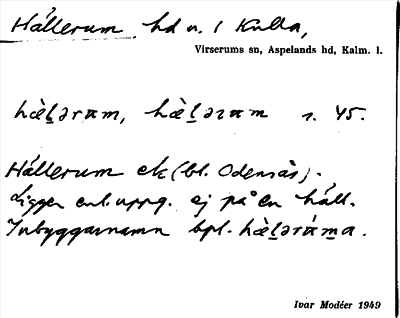 Hällerum hd u. / Kulla,
Virserums sn, Aspelands hd, Kalm. l.
hæ̀ḻərɒm, hæ̀ḻəɿɒm s. 45.
Hällerum ek (bl. Odensås).
Ligger enl. uppg. ej på en häll.
Inbyggarnamn bpl. hæ̀ḻərɒ́m̱a.
Ivar Modéer 1949